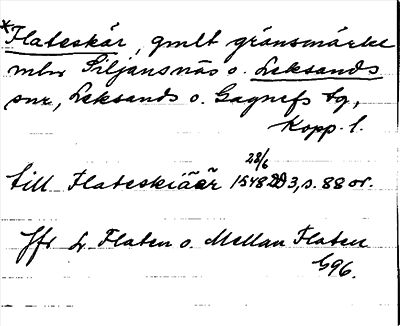 *Flateskär, gmlt gränsmärke
mln Siljansnäs o. Leksands
snr, Leksands o. Gagnefs tg,
Kopp. l.
28/6
till Flateskiäær 1548 DD 3, s. 88 or.
Jfr L. Flaten o. Mellan Flaten
G96.